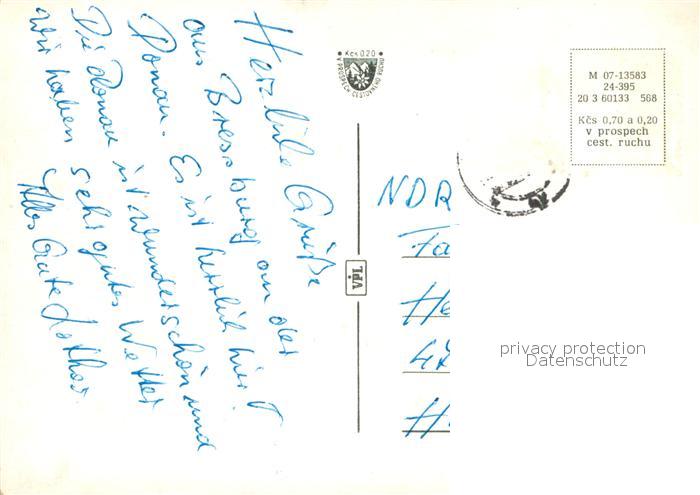 Herzliche Grüße
aus Pressburg an der
Donau. Es ist herrlich hier!
Die Donau ist wunderschön und
wir haben sehr gutes Wetter
Alles Gute Lothar
Kčs 0.20
V PROSPECH CESTOVNÉHO RUCHU
VPL
M 07-13583
24-395
20 3 60133 568
Kčs 0,70 a 0,20
v prospech
cest. ruchu
NDR
Fa
He
H
privacy protection
Datenschutz